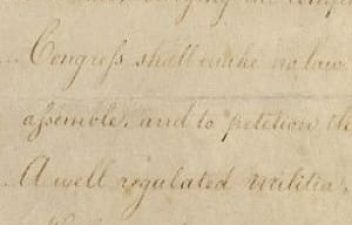 Congreſs shall make no law
aſsemble, and to petition the
A well regulated militia,